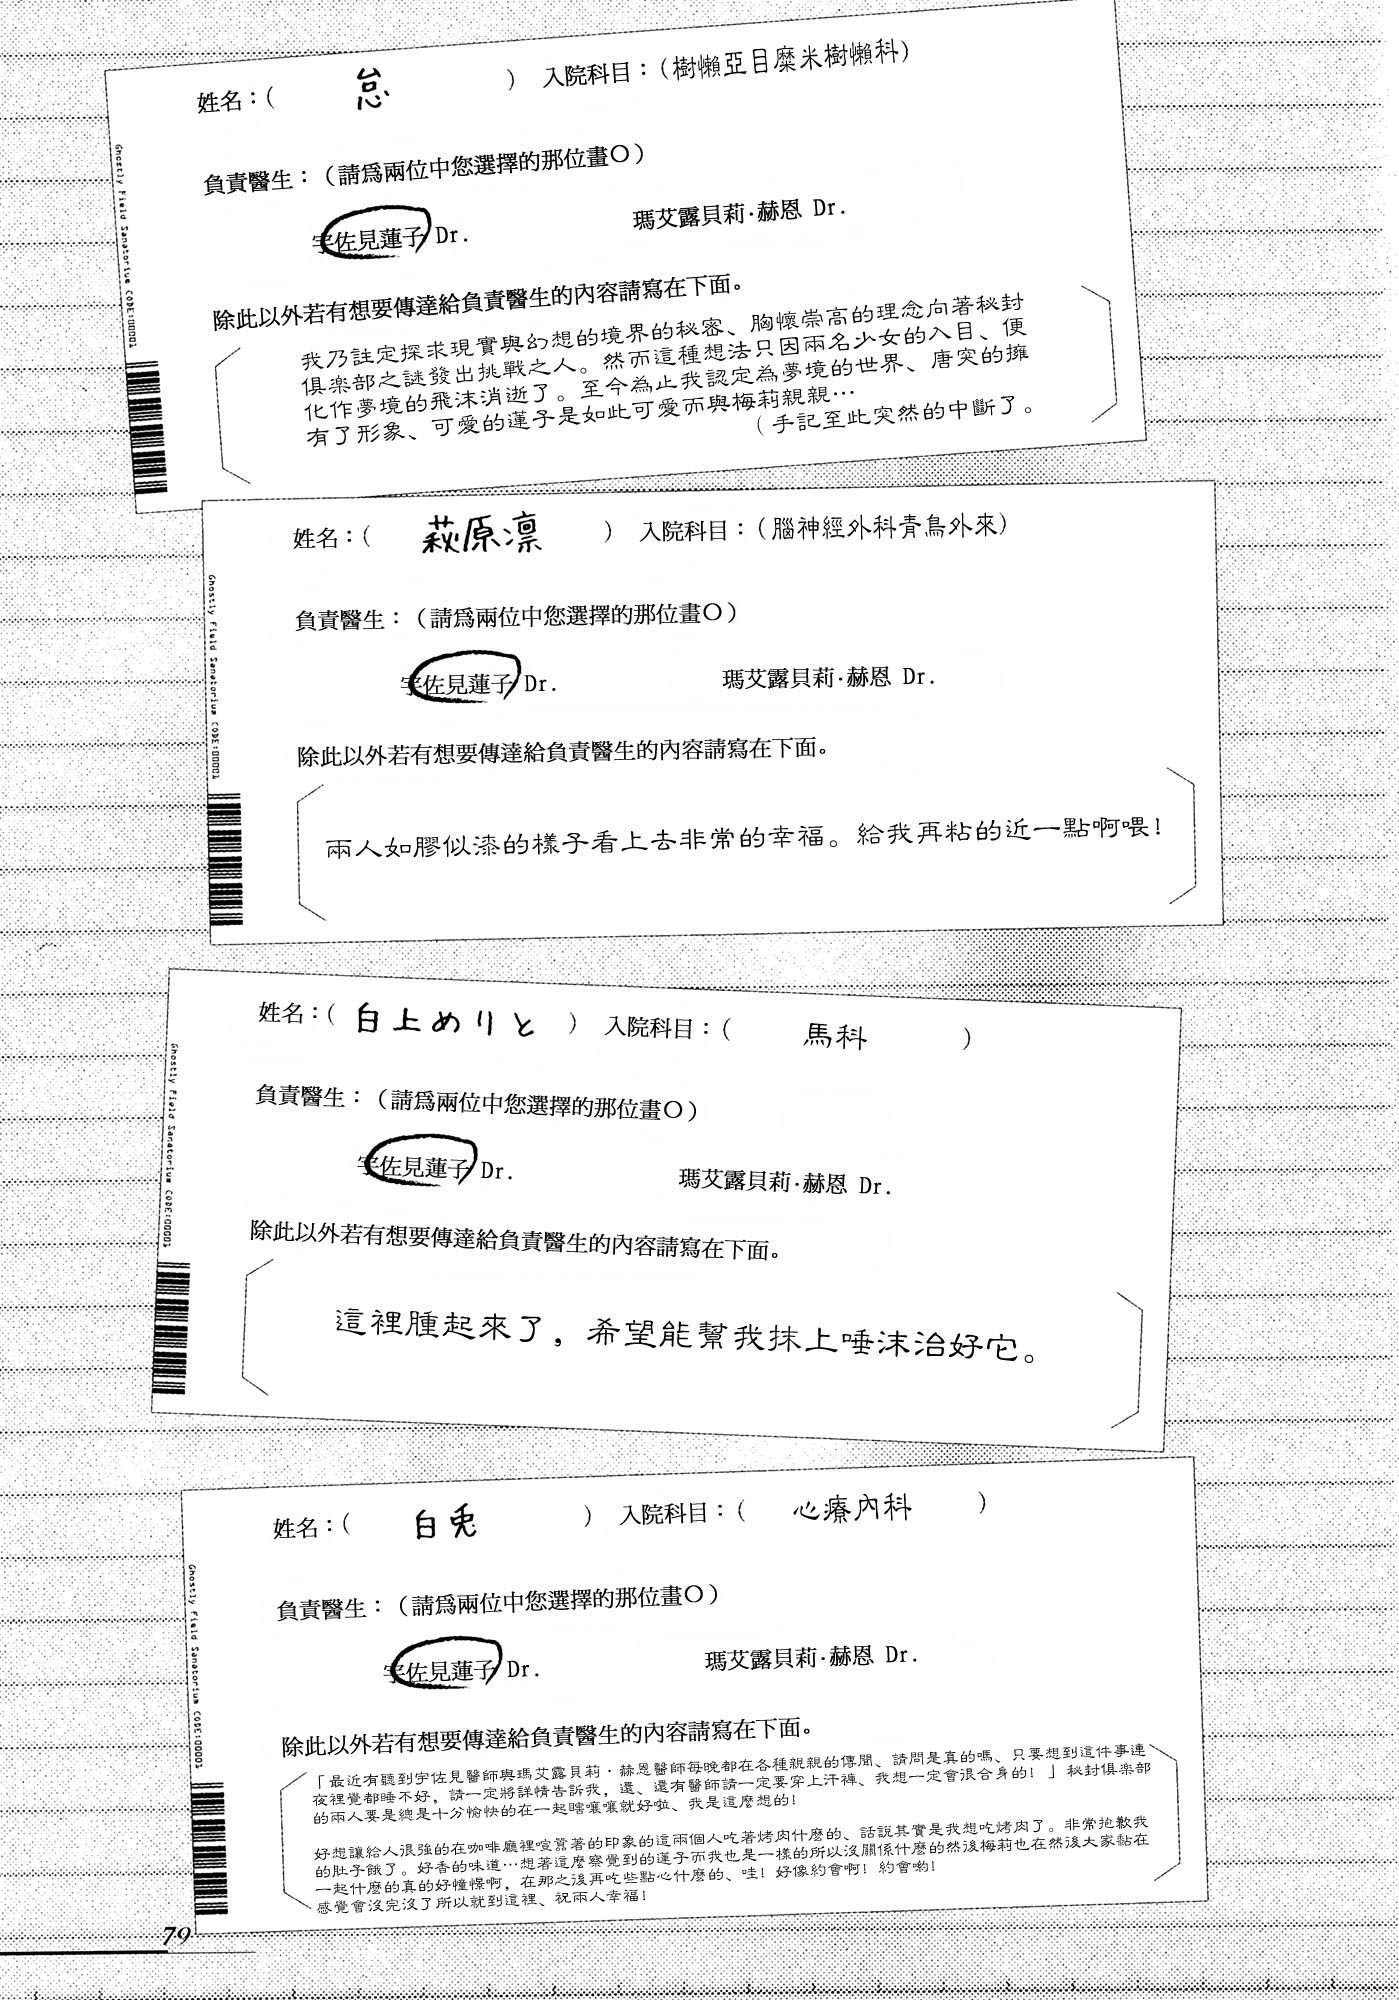 姓名：（ 怠 ） 入院科目：（樹懶亞目糜米樹懶科）
負責醫生：（請爲兩位中您選擇的那位畫○）
宇佐見蓮子 Dr. 瑪艾露貝莉·赫恩 Dr.
除此以外若有想要傳達給負責醫生的內容請寫在下面。
我乃註定探求現實與幻想的境界的秘密、胸懷崇高的理念向著秘封
俱楽部之謎發出挑戰之人。然而這種想法只因兩名少女的入目、便
化作夢境的飛沫消逝了。至今為止我認定為夢境的世界、唐突的擁
有了形象、可愛的蓮子是如此可愛而與梅莉親親…
（手記至此突然的中斷了。
Ghostly Field Sanatorium CODE:00001
姓名：（ 萩原凛 ） 入院科目：（腦神經外科青鳥外來）
負責醫生：（請爲兩位中您選擇的那位畫○）
宇佐見蓮子 Dr. 瑪艾露貝莉·赫恩 Dr.
除此以外若有想要傳達給負責醫生的內容請寫在下面。
兩人如膠似漆的樣子看上去非常的幸福。給我再粘的近一點啊喂！
Ghostly Field Sanatorium CODE:00001
姓名：（ 白上めりと ） 入院科目：（ 馬科 ）
負責醫生：（請爲兩位中您選擇的那位畫○）
宇佐見蓮子 Dr. 瑪艾露貝莉·赫恩 Dr.
除此以外若有想要傳達給負責醫生的內容請寫在下面。
這裡腫起來了，希望能幫我抹上唾沫治好它。
Ghostly Field Sanatorium CODE:00001
姓名：（ 白兎 ） 入院科目：（ 心療內科 ）
負責醫生：（請爲兩位中您選擇的那位畫○）
宇佐見蓮子 Dr. 瑪艾露貝莉·赫恩 Dr.
除此以外若有想要傳達給負責醫生的內容請寫在下面。
「最近有聽到宇佐見醫師與瑪艾露貝莉·赫恩醫師每晚都在各種親親的傳聞、請問是真的嗎、只要想到這件事連
夜裡覺都睡不好，請一定將詳情告訴我，還、還有醫師請一定要穿上汗褲、我想一定會很合身的！」秘封俱楽部
的兩人要是總是十分愉快的在一起瞎嚷嚷就好啦、我是這麼想的！
好想讓給人很強的在咖啡廳裡喧囂著的印象的這兩個人吃著烤肉什麼的、話說其實是我想吃烤肉了。非常抱歉我
的肚子餓了。好香的味道…想著這麼察覺到的蓮子而我也是一樣的所以沒關係什麼的然後梅莉也在然後大家黏在
一起什麼的真的好憧憬啊，在那之後再吃些點心什麼的、哇！好像約會啊！約會喲！
感覺會沒完沒了所以就到這裡、祝兩人幸福！
Ghostly Field Sanatorium CODE:00001
79